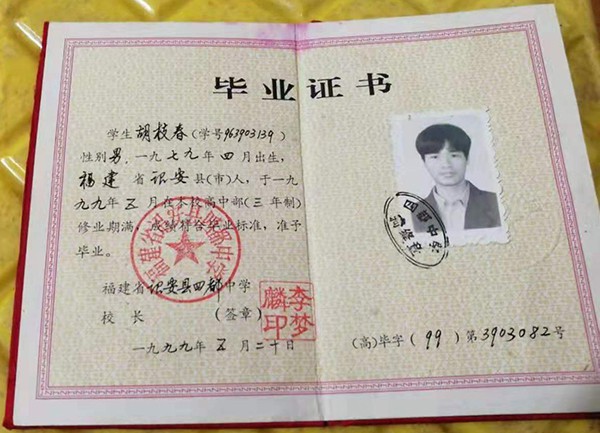 毕业证书
学生胡枝春(学号963903139)
性别男,一九七九年四月出生,
福建省诏安县(市)人,于一九
九九年五月在本校高中部(三年制)
修业期满,成绩符合毕业标准,准予
毕业。
福建省诏安县四都中学
校长(签章)
李梦麟印
一九九九年五月二十日
福建省诏安县四都中学
(高)毕字(99)第3903082号